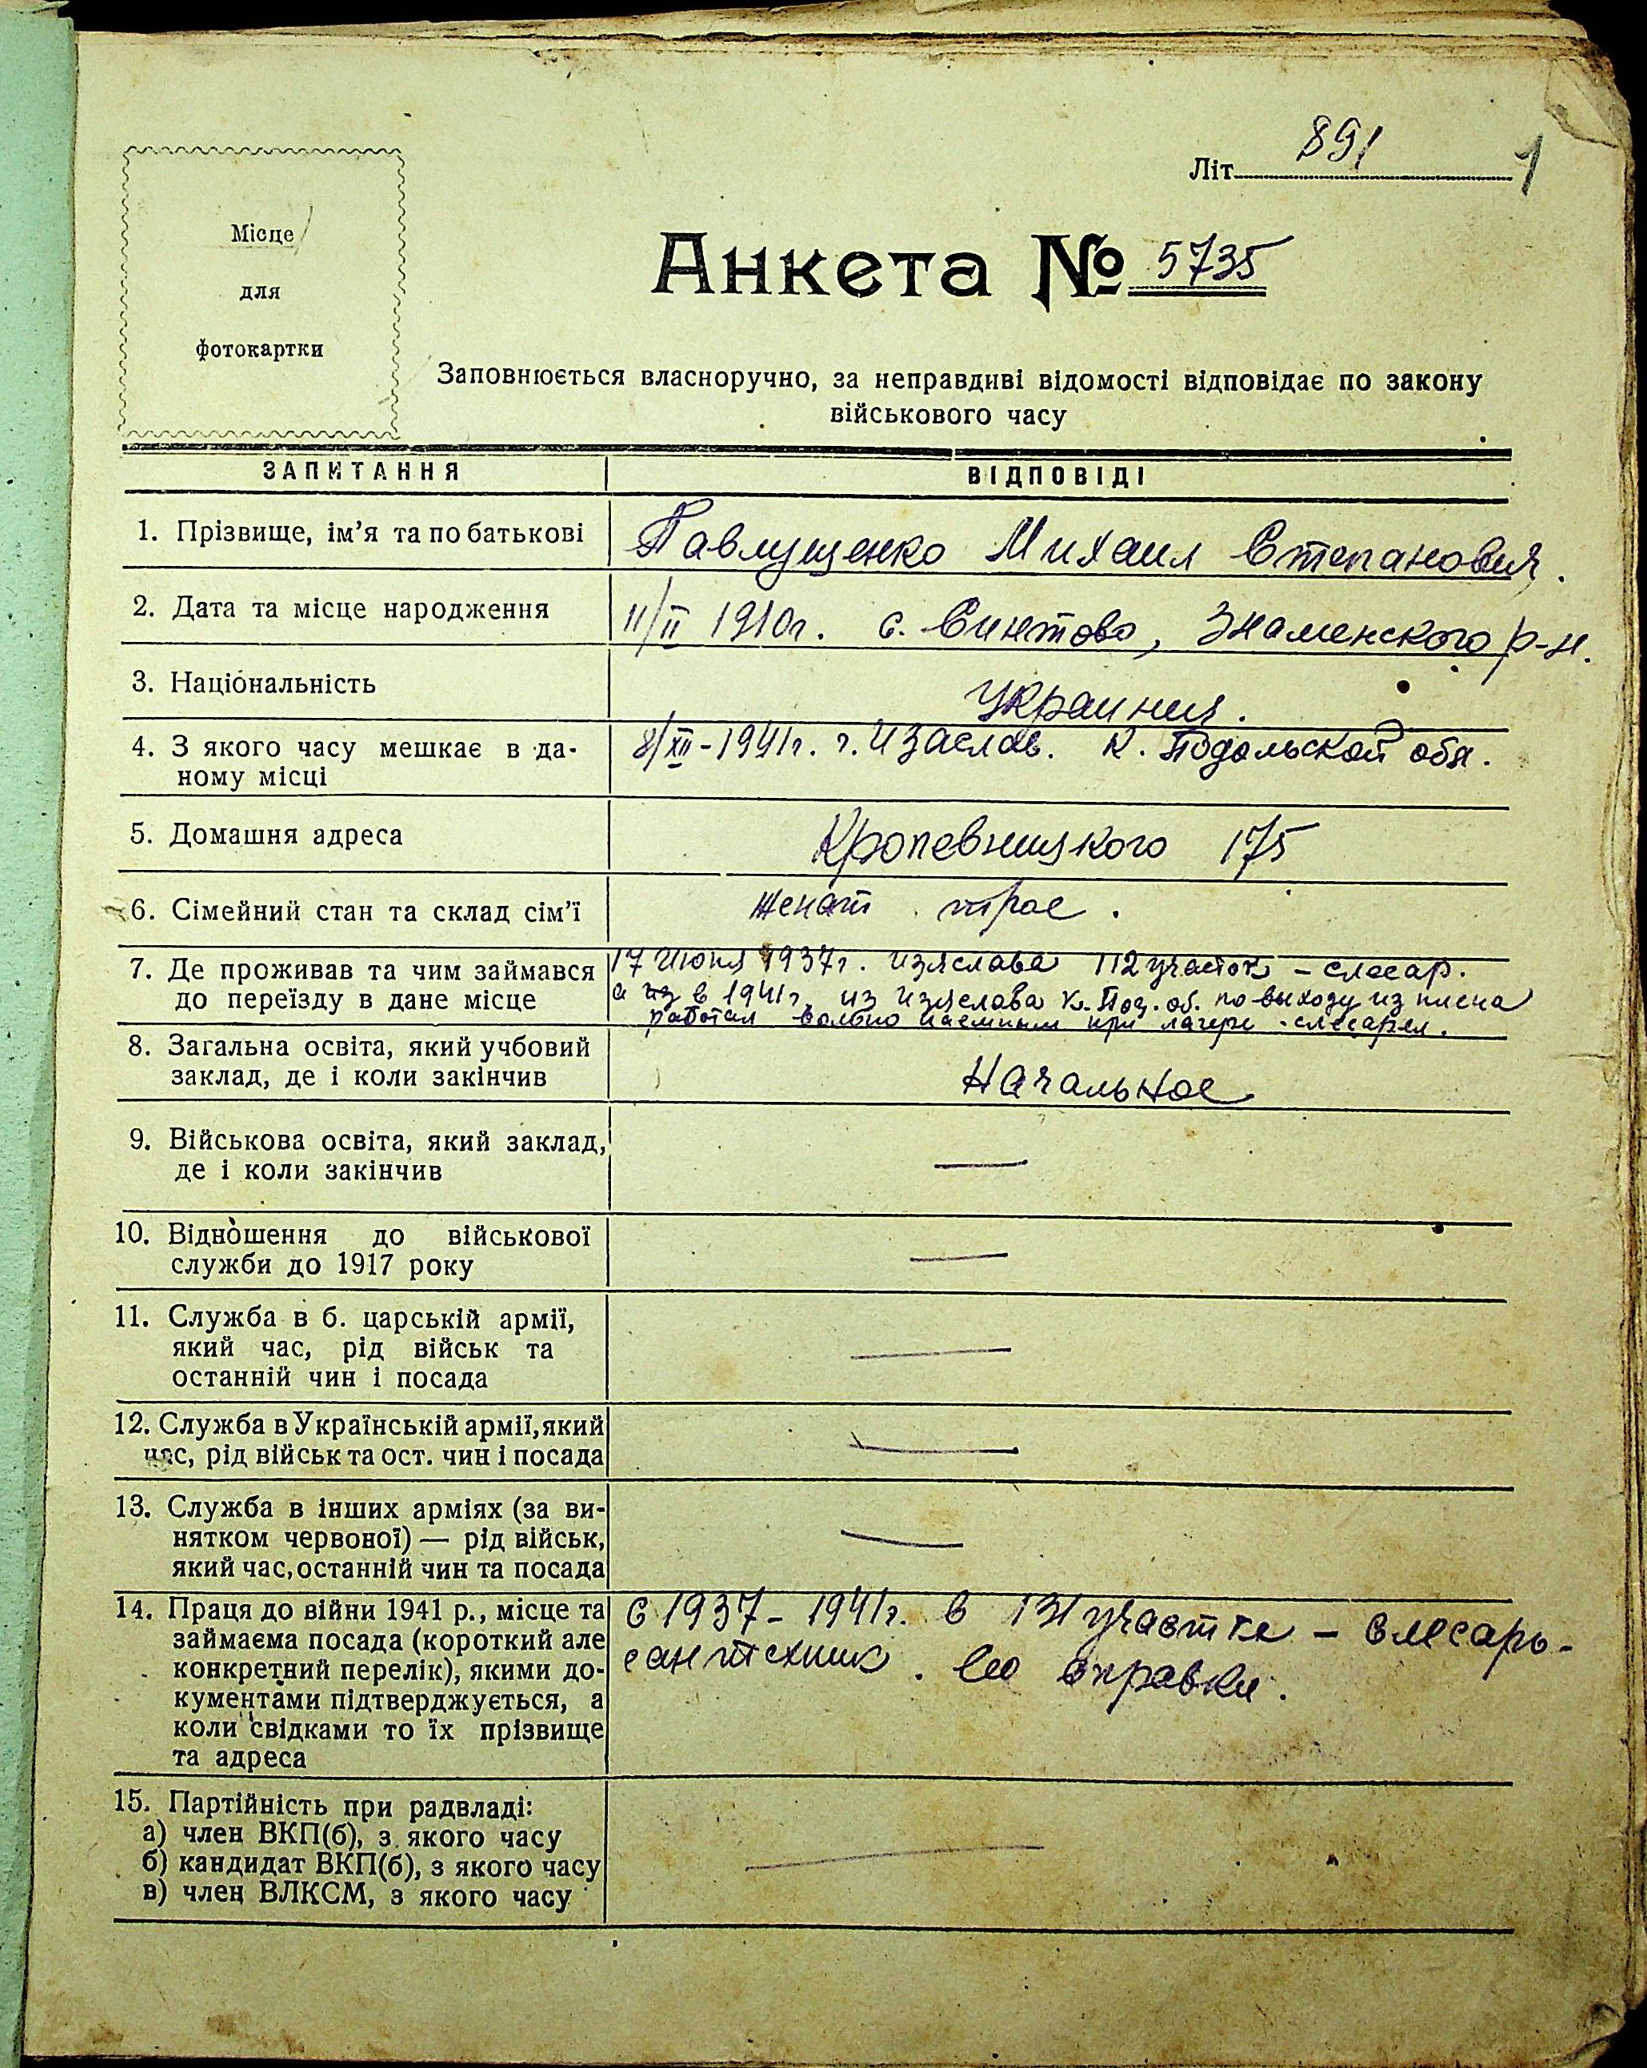 Місце
для
фотокартки
Літ. 891 1
Анкета № 5735
Заповнюється власноручно, за неправдиві відомості відповідає по закону
військового часу
ЗАПИТАННЯ ВІДПОВІДІ
1. Прізвище, ім'я та по батькові Павлущенко Михаил Степанович.
2. Дата та місце народження 11/II 1910г. с. Синтово, Знаменского р-н.
3. Національність Украинец.
4. З якого часу мешкає в да- 8/XII-1941г. г. Изаслав. К. Подольской обл.
ному місці
5. Домашня адреса Кропевницкого 175
6. Сімейний стан та склад сім'ї женат. трое.
7. Де проживав та чим займався 17 Июня 1937г. Изяслава 112 участок – слесар.
до переїзду в дане місце а из в 1941г. из Изяслава К. Под. об. по выходу из плена
работал вольно наемным при лагере - слесарем.
8. Загальна освіта, який учбовий
заклад, де і коли закінчив Начальное
9. Військова освіта, який заклад, —
де і коли закінчив
10. Відношення до військової —
служби до 1917 року
11. Служба в б. царській армії,
який час, рід військ та —
останній чин і посада
12. Служба в Українській армії, який —
час, рід військ та ост. чин і посада
13. Служба в інших арміях (за ви-
нятком червоної) — рід військ, —
який час, останній чин та посада
14. Праця до війни 1941 р., місце та С 1937 - 1941г. в 131 участке – слесарь-
займаєма посада (короткий але сантехник. справки.
конкретний перелік), якими до-
кументами підтверджується, а
коли свідками то їх прізвище
та адреса
15. Партійність при радвладі:
а) член ВКП(б), з якого часу —
б) кандидат ВКП(б), з якого часу
в) член ВЛКСМ, з якого часу